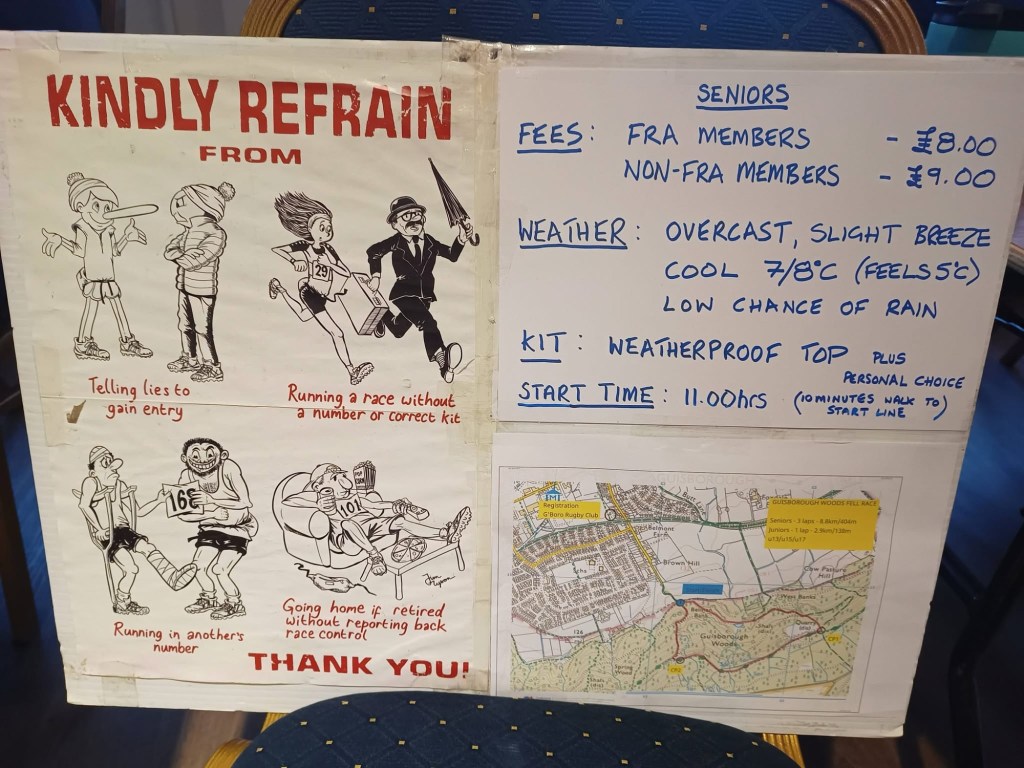 KINDLY REFRAIN
FROM
29
Telling lies to
gain entry
Running a race without
a number or correct kit
168
101
Running in another's
number
Going home if retired
without reporting back
race control
THANK YOU!
SENIORS
FEES: FRA MEMBERS - £8.00
NON-FRA MEMBERS - £9.00
WEATHER: OVERCAST, SLIGHT BREEZE
COOL 7/8°C (FEELS 5°C)
LOW CHANCE OF RAIN
KIT: WEATHERPROOF TOP PLUS
PERSONAL CHOICE
START TIME: 11.00hrs (10 MINUTES WALK TO)
START LINE
GUISBOROUGH WOODS FELL RACE
Seniors - 3 laps - 8.8km/404m
Juniors - 1 lap - 2.9km/138m
u13/u15/u17
Registration
G'Boro Rugby Club
Belmont
Farm
Brown Hill
Cow Pasture
Hill
Guisborough
Woods
CP1
CP2
Spring
Wood